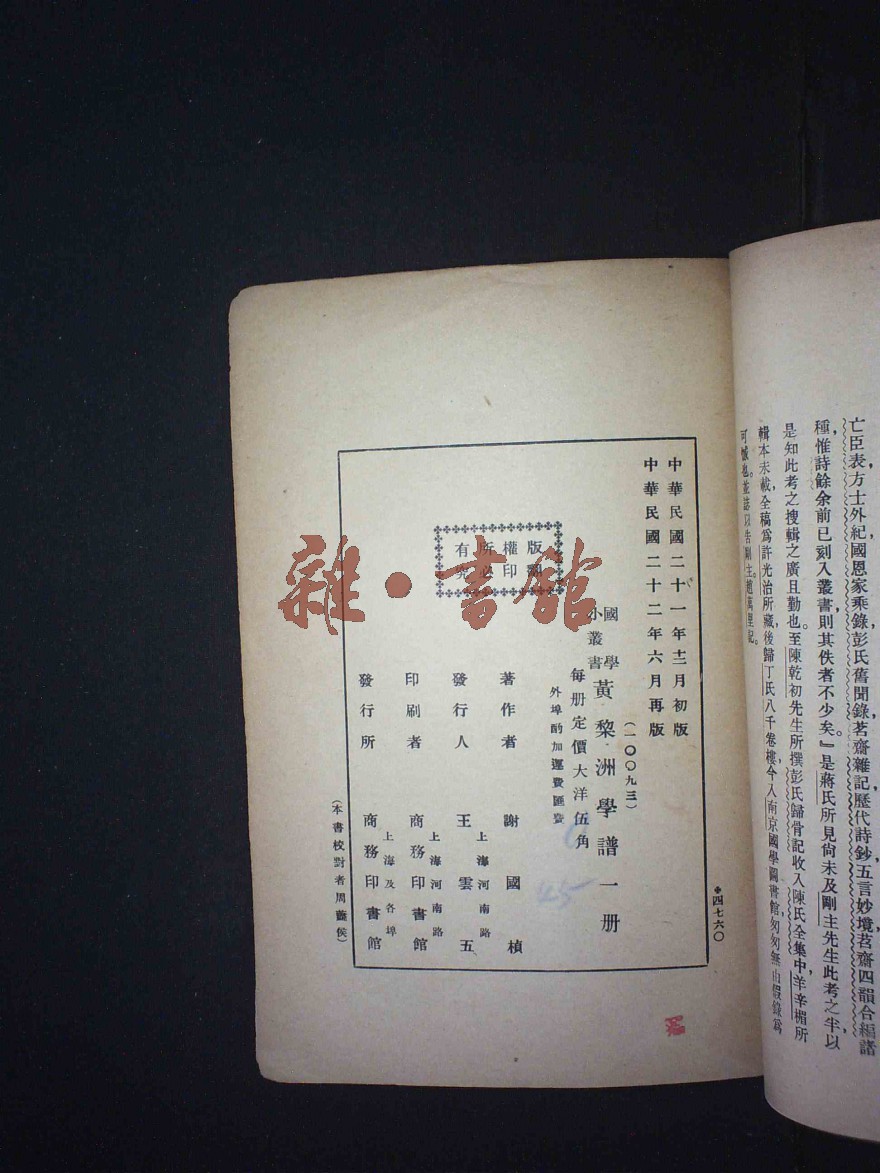 亡臣表方士外紀國恩家乘錄彭氏舊聞錄茗齋雜記歷代詩鈔五言妙境茗齋四韻合編諸
種惟詩餘余前已刻入叢書則其佚者不少矣』是蔣氏所見尙未及剛主先生此考之半以
是知此考之搜輯之廣且勤也。至陳乾初先生所撰彭氏歸骨記收入陳氏全集中羊辛楣所
輯本未載全稿爲許光治所藏後歸丁氏八千卷樓今入南京國學圖書館匆匆無由假錄爲
可憾也。並誌以吿剛主趙萬里記。
❖四七六〇
中華民國二十一年十二月初版
中華民國二十二年六月再版
(一〇〇九三)
國學小叢書
黃黎洲學譜一册
每册定價大洋伍角
外埠酌加運費匯費
版權所有
印必究
著作者 謝國楨
發行人 王雲五
上海河南路
印刷者 商務印書館
上海河南路
發行所 商務印書館
上海及各埠
(本書校對者周侯)
雜·書館
45